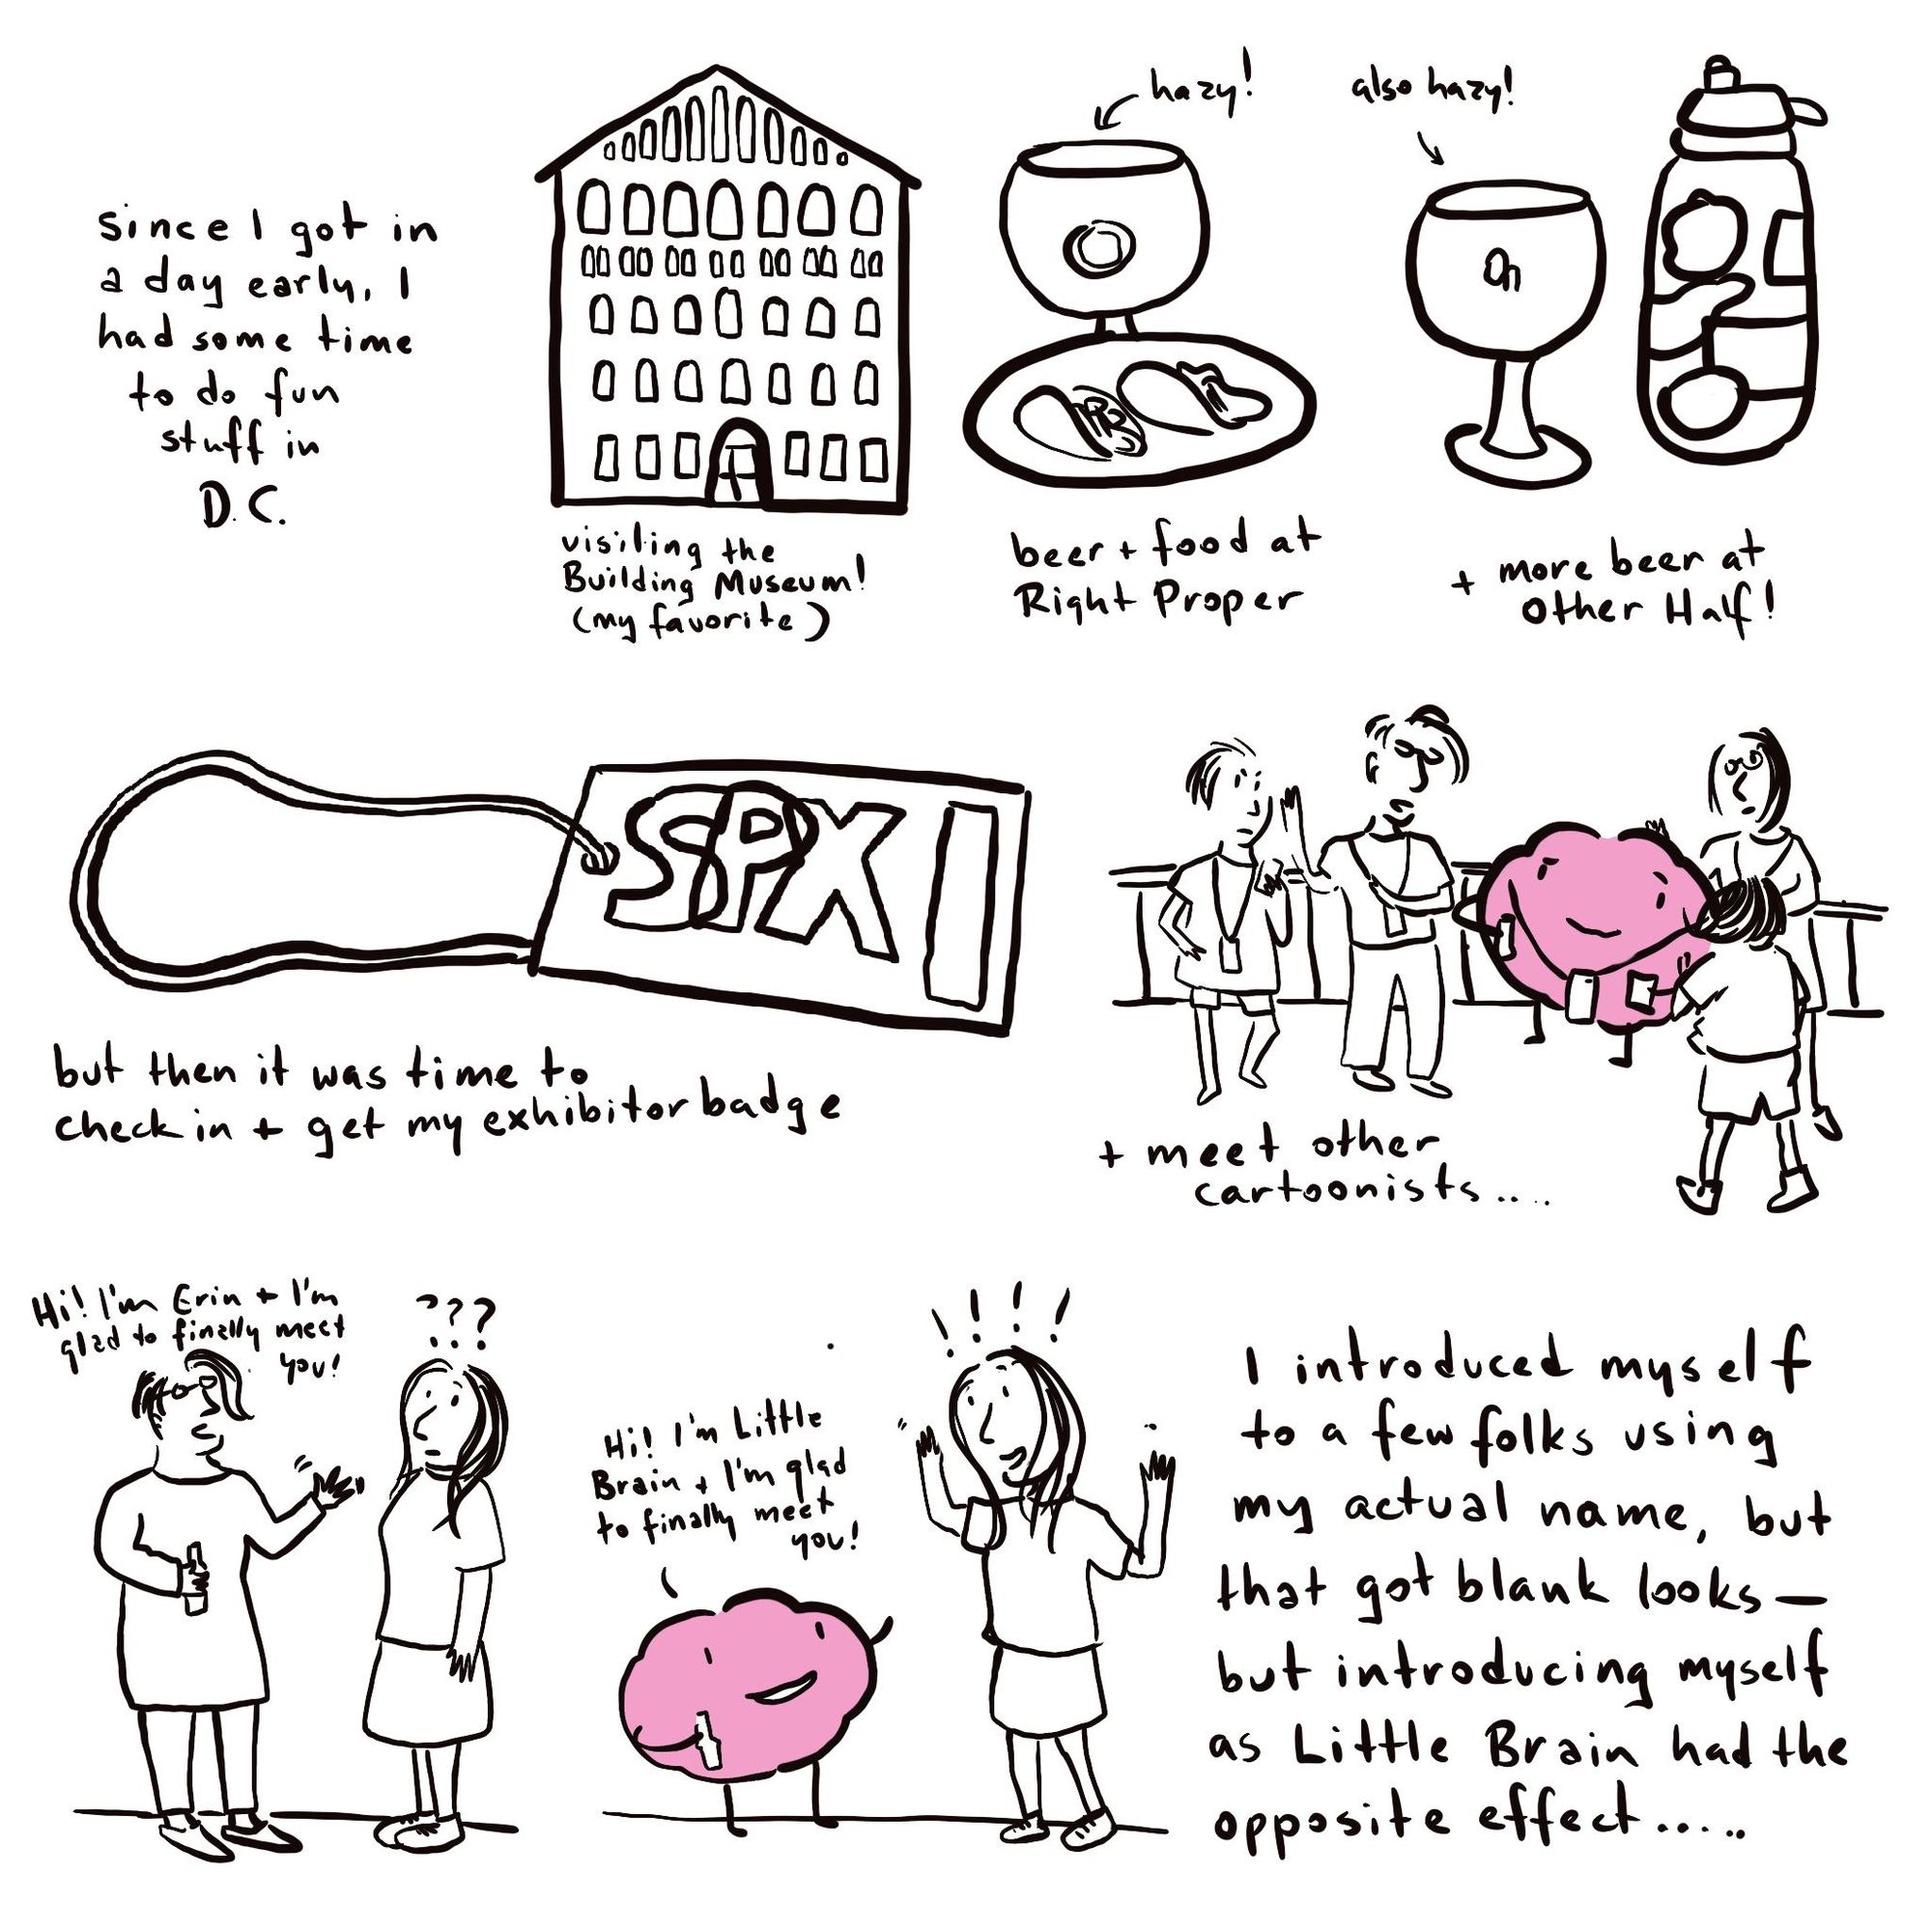 since I got in
a day early, I
had some time
to do fun
stuff in
D.C.
visiting the
Building Museum!
(my favorite)
hazy!
beer + food at
Right Proper
also hazy!
Oh
+ more beer at
Other Half!
SPX
but then it was time to
check in + get my exhibitor badge
+ meet other
cartoonists.....
Hi! I'm Erin + I'm
glad to finally meet
you!
???
Hi! I'm Little
Brain + I'm glad
to finally meet
you!
! ! ! !
I introduced myself
to a few folks using
my actual name, but
that got blank looks—
but introducing myself
as Little Brain had the
opposite effect.....